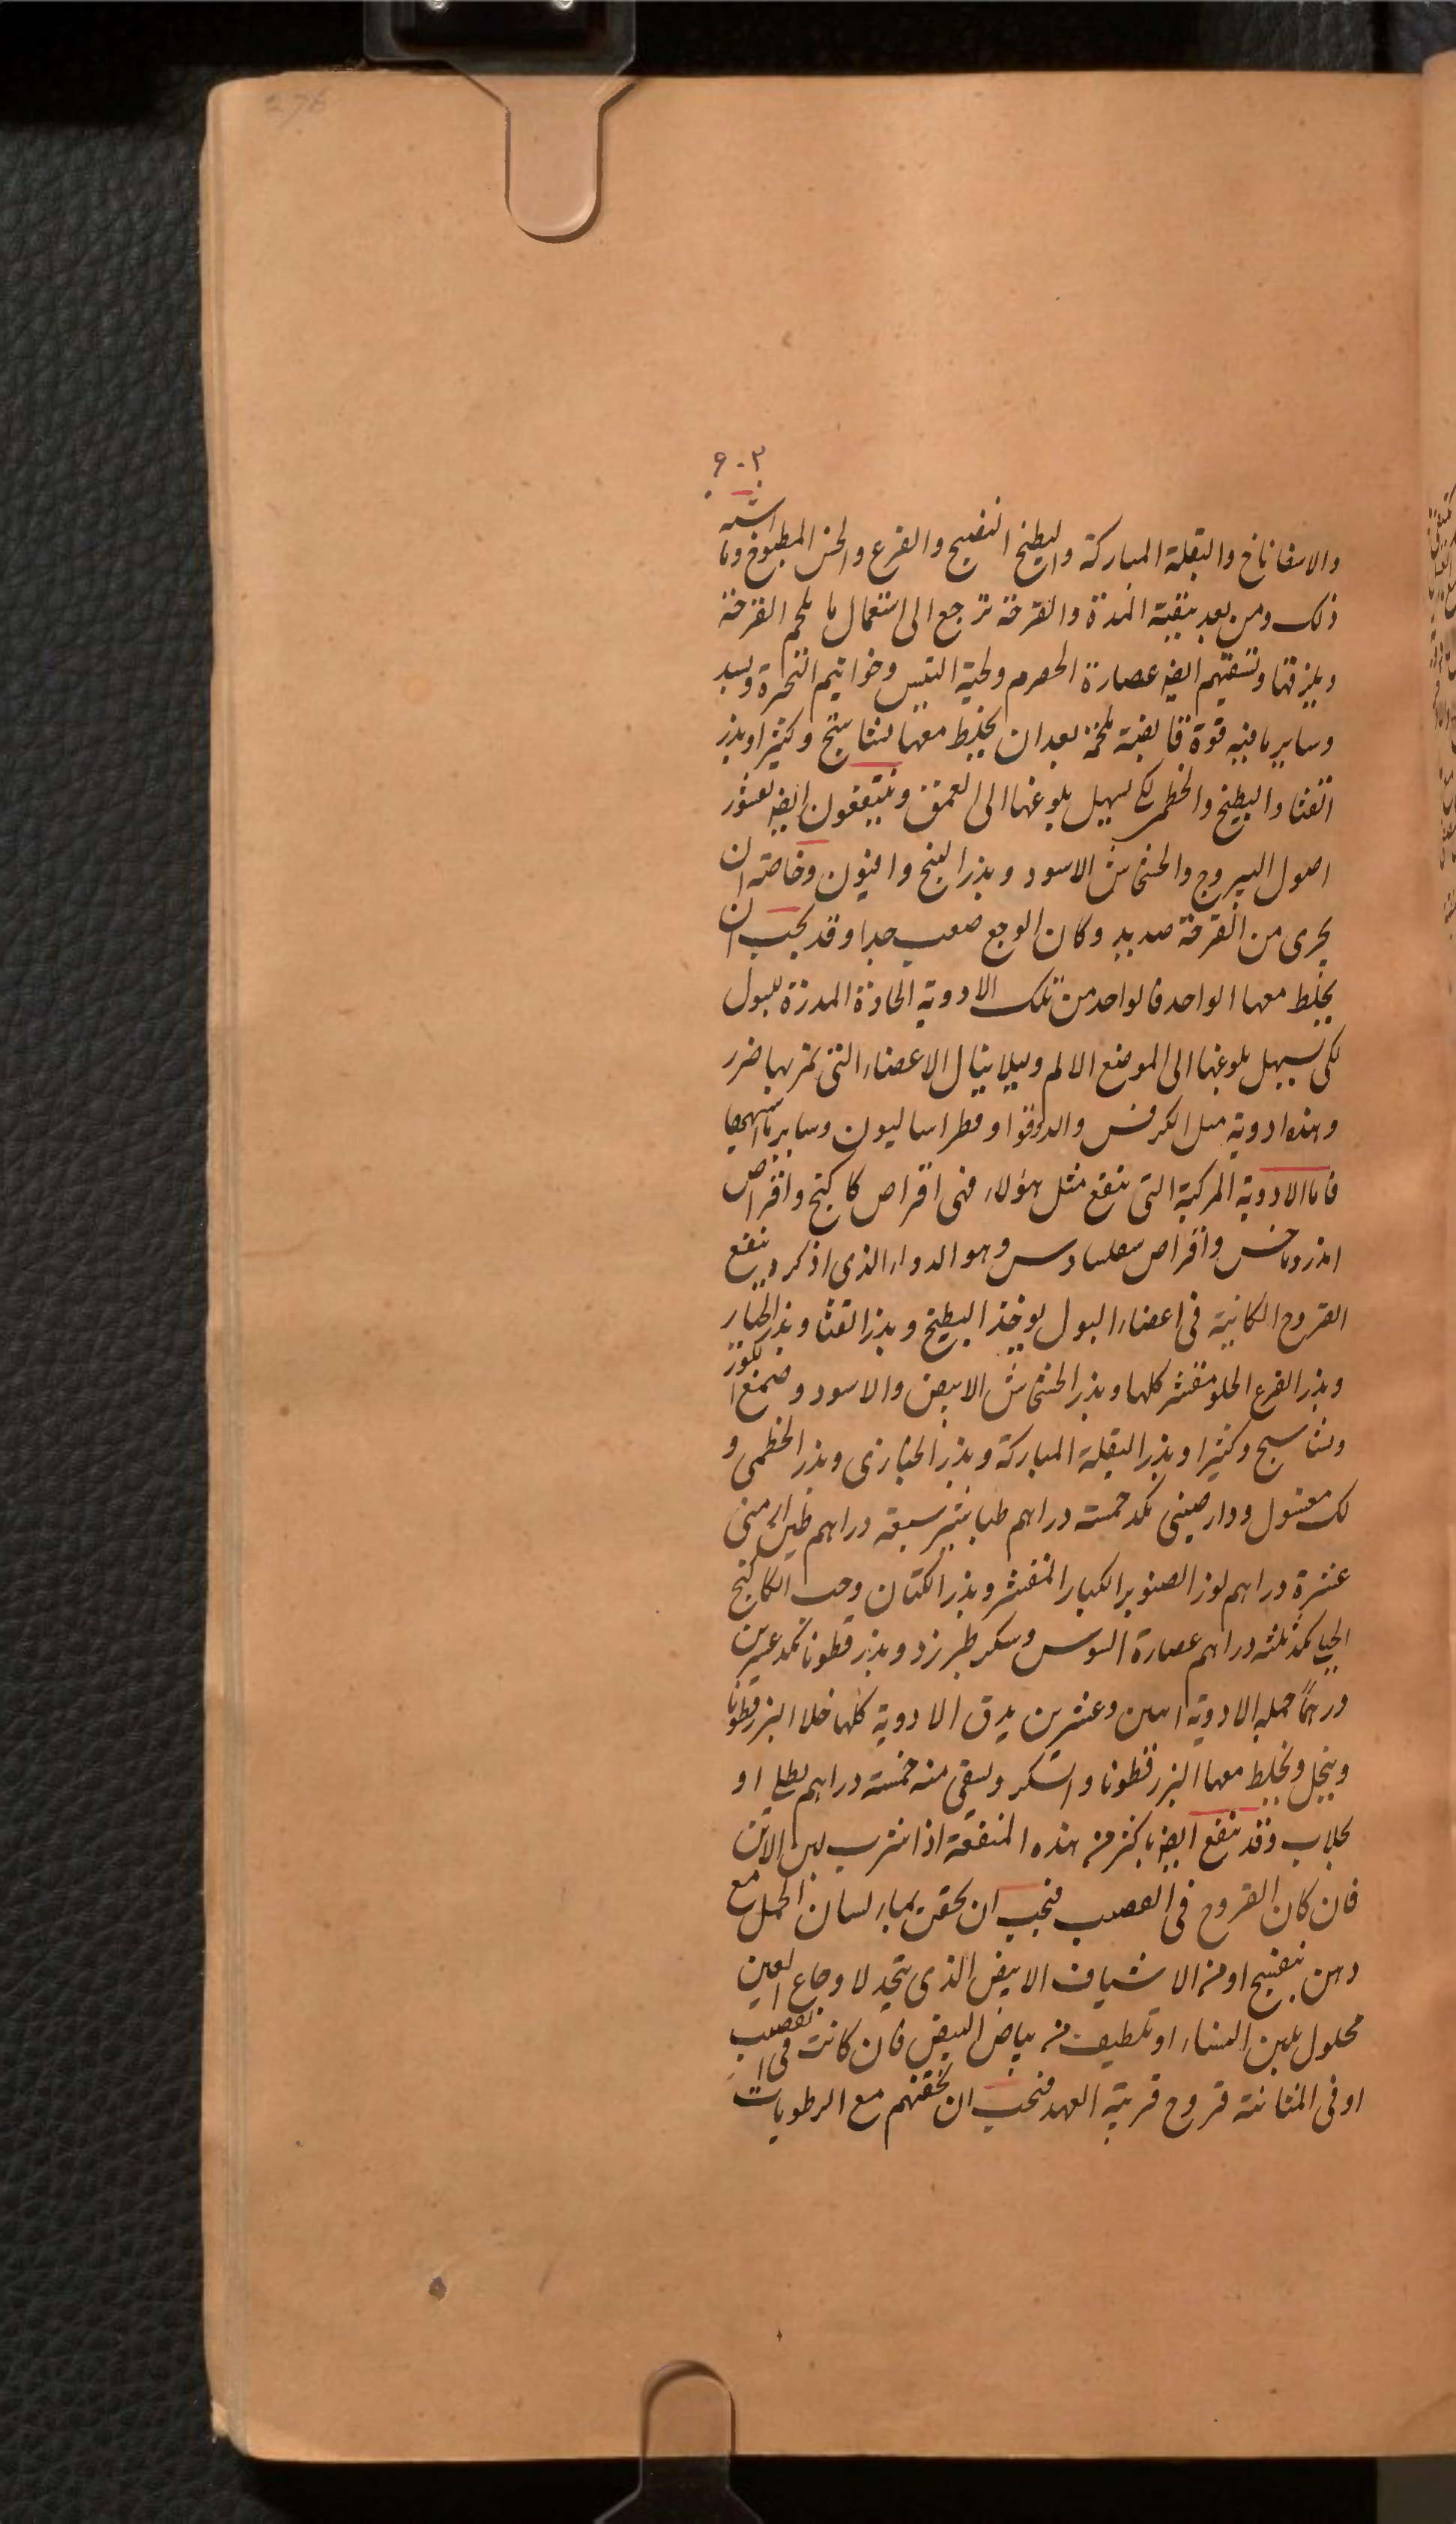 276
۶۰۲
والاسفاناخ والبقلة المباركة والبطيخ النضيج والقرع والخس المطبوخ وما اشبه
ذلك ومن بعد ينقية المدة والقرحة ترجع الى استعمال ما يلحم القرحة
ويلزقها وتسقيهم ايضا عصارة الحصرم ولحية التيس وخواتيم البحرة وبسد
وساير ما فيه قوة قابضة ملحمة بعد ان يخلط معها نشاستج وكثيرا وبذر
القثا والبطيخ والخطمى لكى يسهل بلوغها الى العمق وينتفعون ايضا بقشور
اصول اليبروج والخشخاش الاسود وبذر البنج وافيون وخاصته ان
يجرى من القرحة صديد وكان الوجع صعب جدا وقد يجب ان
يخلط معها الواحد فالواحد من تلك الادوية الحادة المدرة للبول
لكى يسهل بلوغها الى الموضع الالم وليلا ينال الاعضاء التى تمر بها ضرر
وهذه ادوية مثل الكرفس والدوقوا وفطراساليون وساير ما اشبهها
فاما الادوية المركبة التى ينفع مثل هؤلاء فهى اقراص كاكنج واقراص
واقراص وهو الدواء الذى اذكره ينفع
القروح الكاينة فى اعضاء البول يوخذ البطيخ وبذر القثا وبذر الخيار
وبذر القرع الحلو مقشر كلها وبذر الخشخاش الابيض والاسود وصمغ اللوز
ونشاستج وكثيرا وبذر البقلة المباركة وبذر الخبازى وبذر الخطمى و
لك مغسول ودارصينى بكد خمسة دراهم طباشير سبعة دراهم طين ارمنى
عشرة دراهم لوز الصنوبر الكبار المقشر وبذر الكتان وحب الكاكنج
الجبلى بكد ثلثه دراهم عصارة السوس وسكر طبرزد وبذر قطونا بكد عشرين
درهمًا جمله الادوية اثنين وعشرين يدق الادوية كلها خلا البزرقطونا
وينخل ويخلط معها البزرقطونا والسكر ويسقى منه خمسة دراهم بطلا او
بجلاب وقد ينفع ايضا باكثر من هذه المنفعة اذا شرب بلبن الاتن
فان كان القروح فى القصب فيجب ان يحقن بماء لسان الحمل مع
دهن بنفسج او من الاشياف الابيض الذى يتخذ لاوجاع العين
محلول بلبن النساء او بلطيف من بياض البيض فان كانت فى القصب
او فى المثانة قروح قريبة العهد فيجب ان تحقنهم مع الرطوبات